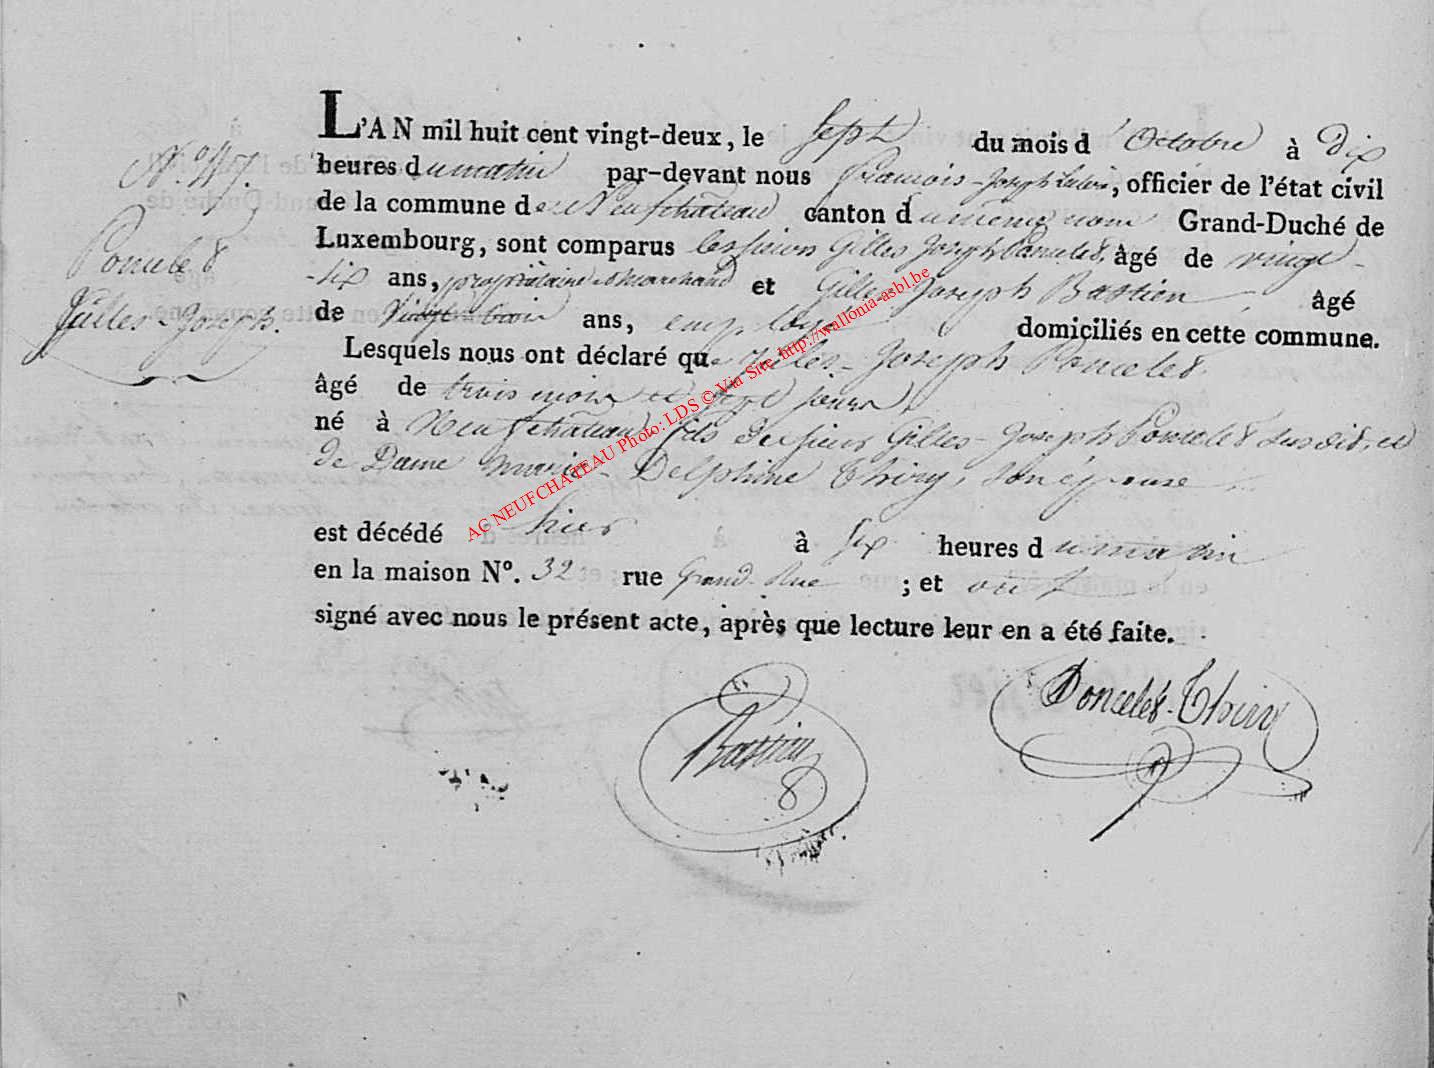 L'AN mil huit cent vingt-deux, le Sept du mois d'Octobre à Dix
heures du matin par-devant nous François-Joseph, officier de l'état civil
de la commune de Neufchâteau canton du même nom Grand-Duché de
Luxembourg, sont comparus les sieurs Gilles Joseph Poncelet, âgé de vingt-
six ans, propriétaire & Marchand et Gilles-Joseph Bastien âgé
de Vingt trois ans, employé domiciliés en cette commune.
Lesquels nous ont déclaré que Joseph Poncelet
âgé de trois mois et sept jours,
né à Neufchâteau, fils de sieur Gilles-Joseph Poncelet susdit, et
de Dame Marie-Delphine Thiry, son épouse
est décédé hier à six heures du matin
en la maison N°. 32 rue Grand-Rue ; et ont
signé avec nous le présent acte, après que lecture leur en a été faite.
Bastien
Poncelet-Thiry
Poncelet
-Joseph.
AC NEUFCHATEAU Photo: LDS © Via Site http://wallonia-asbl.be